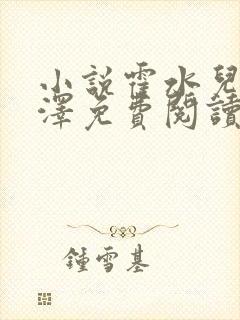 小説霍水兒
澤免費閱讀
鍾雪基